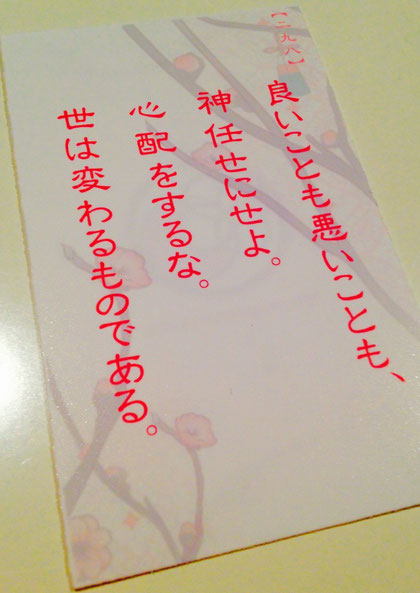 【二九八】
良いことも悪いことも、
神任せにせよ。
心配をするな。
世は変わるものである。